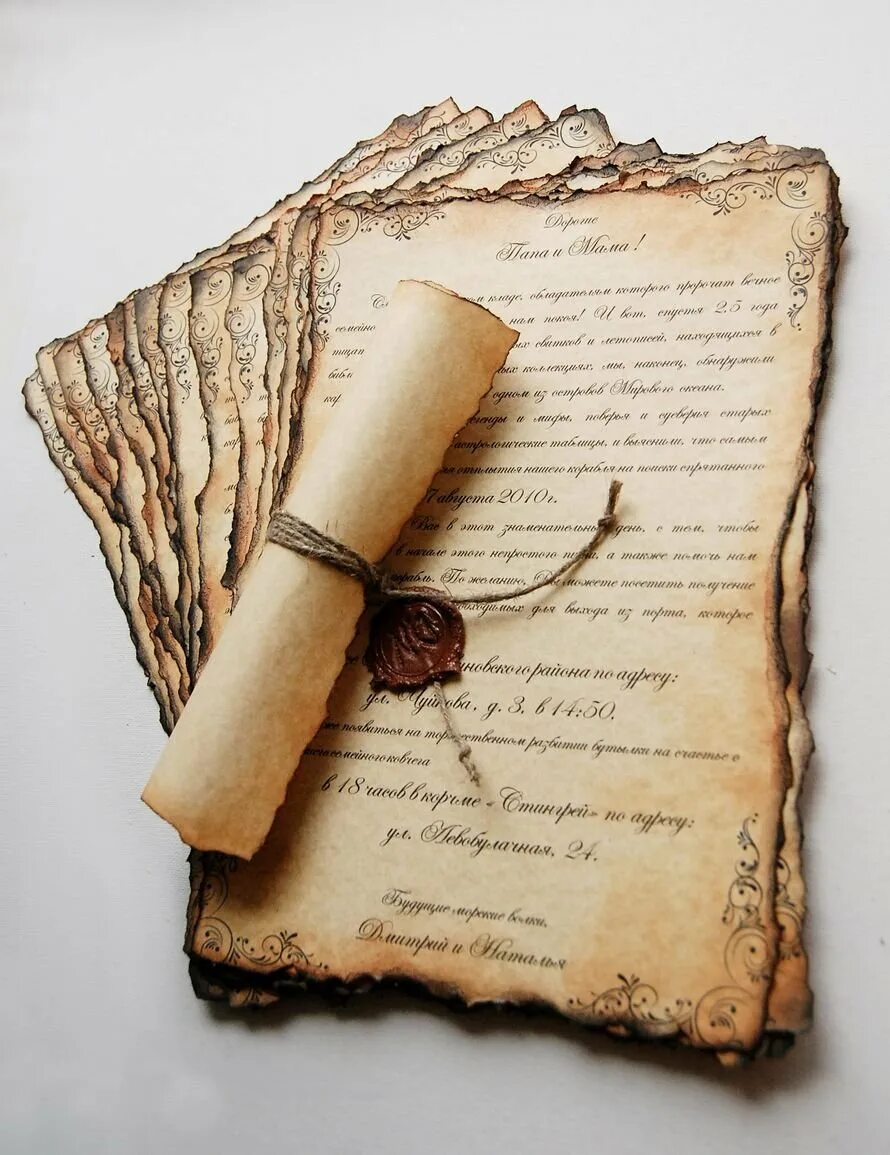 Дорогие
Папа и Мама!
ком кладе, обладателям которого пророчат вечное
семейно нам покоя! И вот, спустя 2,5 года
тщат ых свитков и летописей, находящихся в
библ ых коллекциях, мы, наконец, обнаружили
кар одном из островов Мирового океана.
легенды и мифы, поверья и суеверия старых
астрологические таблицы, и выяснили, что самым
я отплытия нашего корабля на поиски спрятанного
7 августа 2010г.
Вас в этот знаменательный день, с тем, чтобы
в начале этого непростого пути, а также помочь нам
корабль. По желанию, Вы можете посетить получение
обходимых для выхода из порта, которое
новского района по адресу:
ул. Чуйкова, д. 3, в 14:50.
же появиться на торжественном развитии бутылки на счастье о
семейного ковчега
в 18 часов в корчме «Стингрей» по адресу:
ул. Левобулачная, 24.
Будущие морские волки,
Дмитрий и Наталья